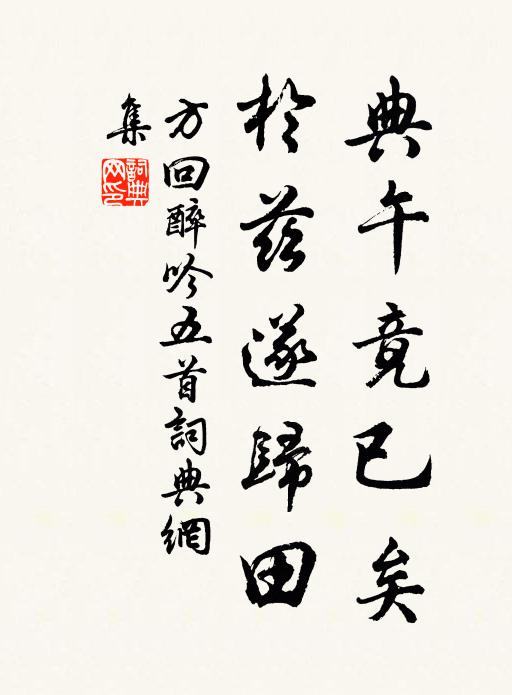 典午竟已矣
於茲遂歸田
方回醉吟五首詞典網
集
詞典
网印